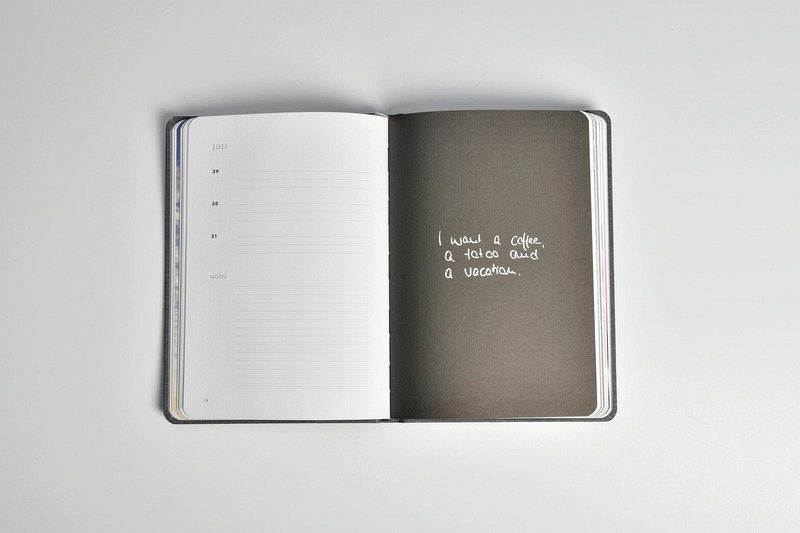 JULI
29
30
31
NOTES
I want a coffee,
a tatoo and
a vacation.